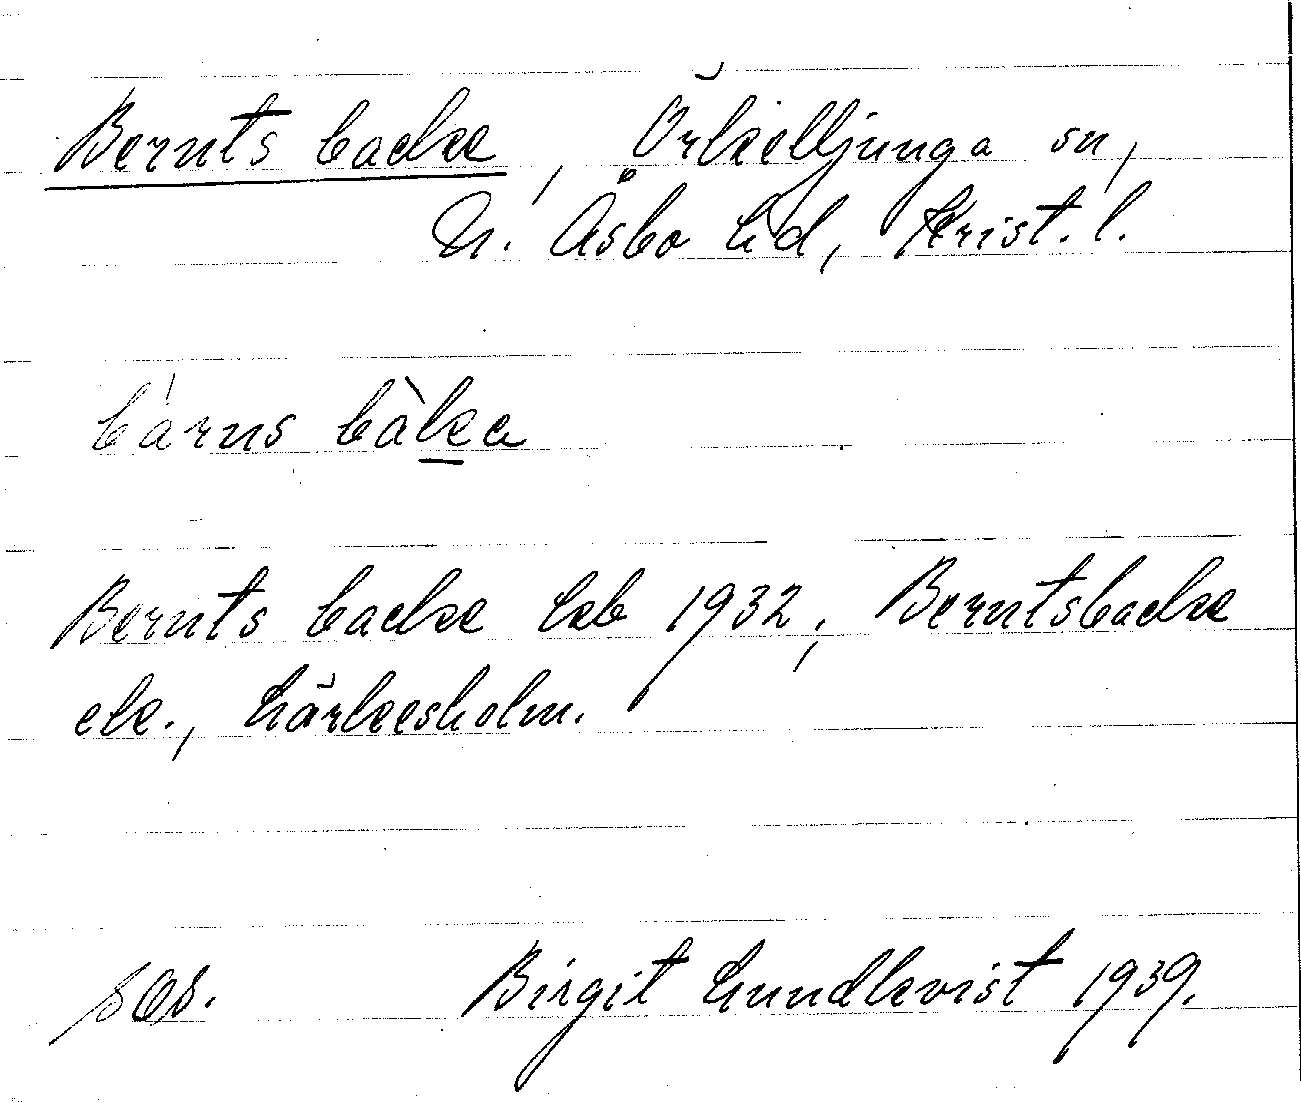 Bernts backe, Örkelljunga sn,
N. Åsbo hd, Krist. l.
bárns bàka
Bernts backe Lkb 1932, Berntsbacke
ek., Lärkesholm.
Birgit Lundkvist 1939.